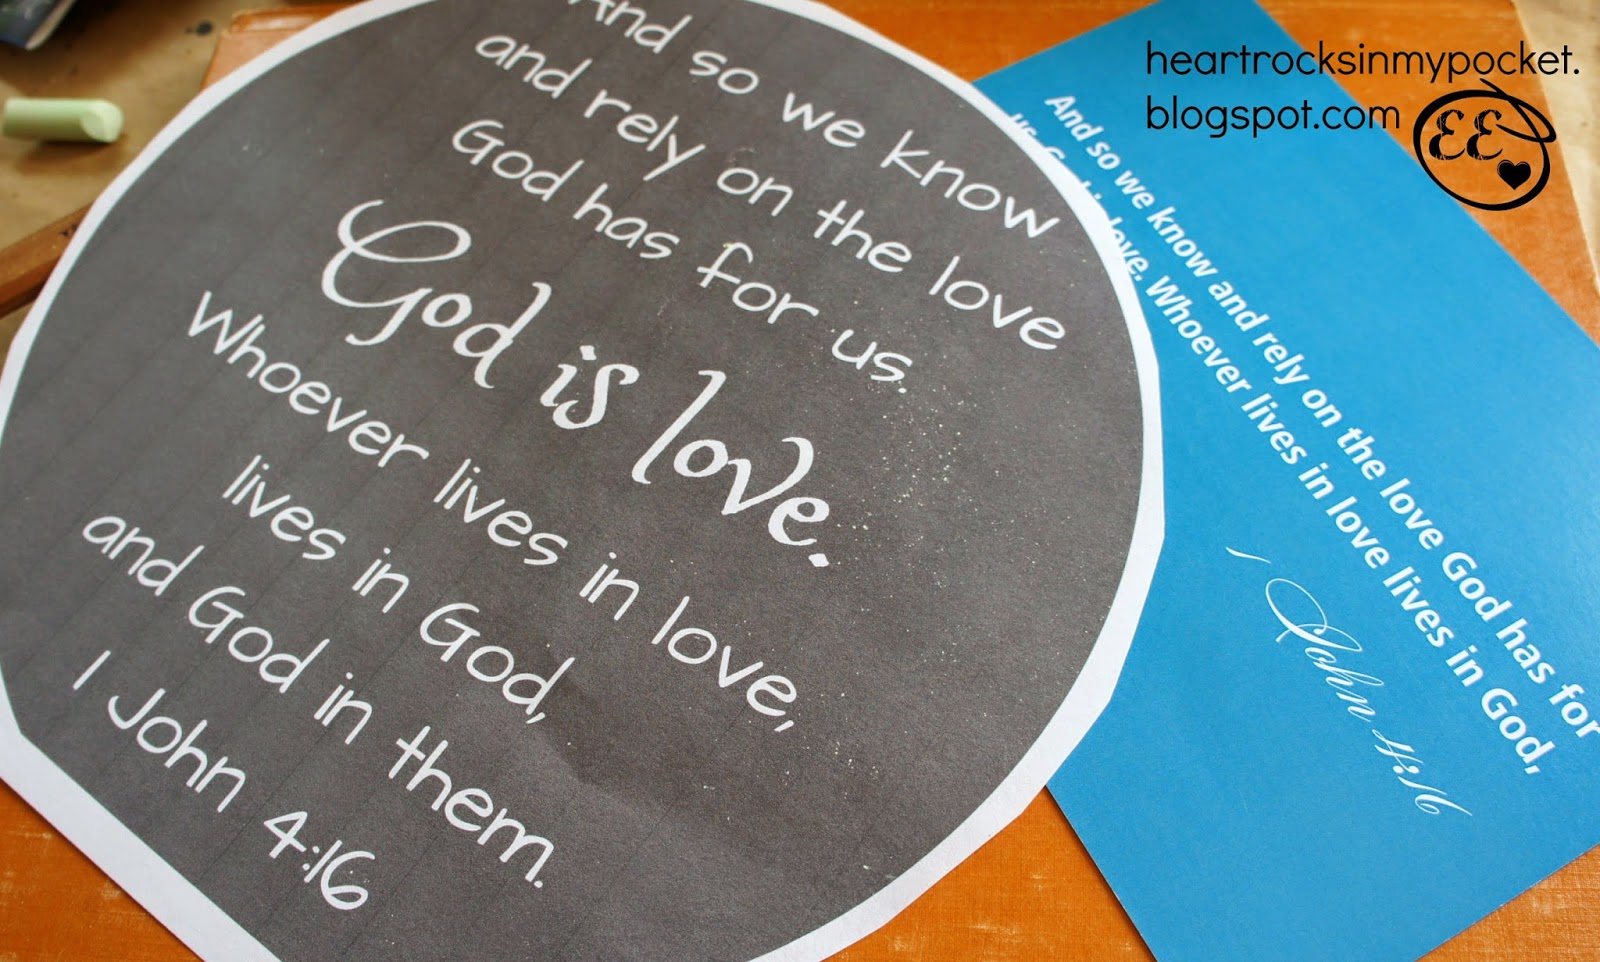 And so we know
and rely on the love
God has for us.
God is love.
Whoever lives in love,
lives in God,
and God in them.
1 John 4:16
heartrocksinmypocket.
blogspot.com
ƐƐ
And so we know and rely on the love God has for
love. Whoever lives in love lives in God,
1 John 4:16